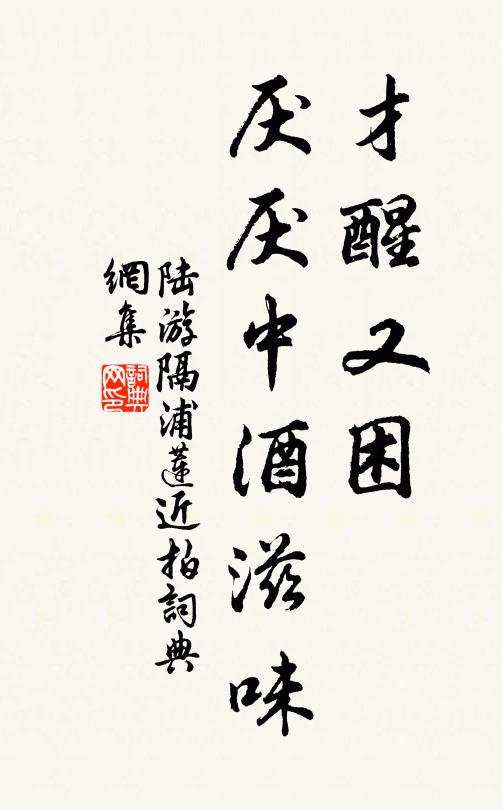 才醒又困
厌厌中酒滋味
陆游隔浦蓮近拍詞典
網集
詞典
网印